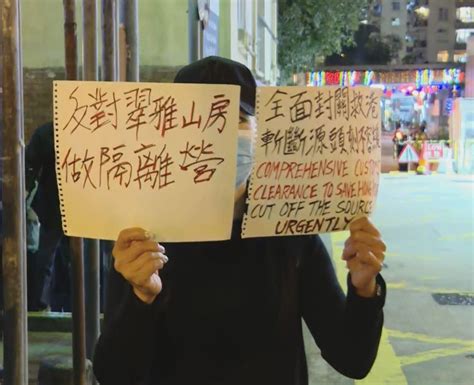 反對翠雅山房
做隔離營
全面封關救港
斬斷源頭刻不容緩
COMPREHENSIVE
CLEARANCE TO SAVE
CUT OFF THE SOURCE
URGENTLY